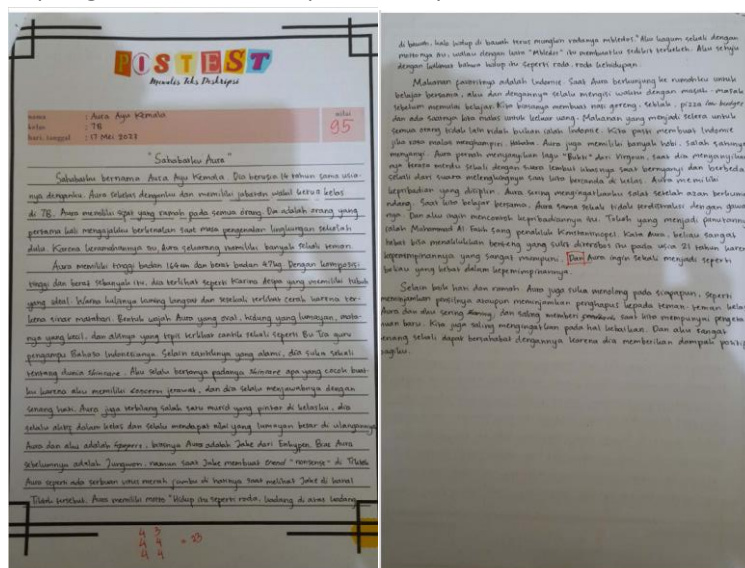 POSTEST
Menulis Teks Deskripsi
nama : Aura Ayu Kemala
kelas : 7B
hari, tanggal : 17 Mei 2023
nilai
95
"Sahabatku Aura"
Sahabatku bernama Aura Ayu Kemala. Dia berusia 14 tahun sama usia-
nya denganku. Aura sekelas denganku dan memiliki jabatan wakil ketua kelas
di 7B. Aura memiliki sifat yang ramah pada semua orang. Dia adalah orang yang
pertama kali mengajakku berkenalan saat masa pengenalan lingkungan sekolah
dulu. Karena keramahannya itu, Aura sekarang memiliki banyak sekali teman.
Aura memiliki tinggi badan 164 cm dan berat badan 47kg. Dengan komposisi
tinggi dan berat sebanyak itu, dia terlihat seperti Karina Aespa yang memiliki tubuh
yang ideal. Warna kulitnya kuning langsat dan sesekali terlihat cerah karena ter-
kena sinar matahari. Bentuk wajah Aura yang oval, hidung yang lumayan, mata-
nya yang kecil, dan alisnya yang tipis terlihat cantik sekali seperti Bu Tia guru
pengampu Bahasa Indonesianya. Selain cantiknya yang alami, dia suka sekali
tentang dunia skincare. Aku selalu bertanya padanya skincare apa yang cocok buat-
ku karena aku memiliki concern jerawat, dan dia selalu menjawabnya dengan
senang hati. Aura juga terbilang salah satu murid yang pintar di kelasku, dia
selalu aktif dalam kelas dan selalu mendapat nilai yang lumayan besar di ulangannya
Aura dan aku adalah , biasnya Aura adalah Jake dari Enhypen. Bias Aura
sebelumnya adalah Jungwon, namun saat Jake membuat trend "nonsense" di Tiktok
Aura seperti ada serbuan virus merah jambu di hatinya saat melihat Jake di kanal
Tiktok tersebut. Aura memiliki motto "Hidup itu seperti roda, kadang di atas kadang
4 3
4 4 = 23
4 4
di bawah, kalo hidup di bawah terus mungkin rodanya mbledos." Aku kagum sekali dengan
motto nya itu, walau dengan kata "Mbledos" itu membuatku sedikit terkekeh. Aku setuju
dengan kalimat bahwa hidup itu seperti roda, roda kehidupan.
Makanan favoritnya adalah Indomie. Saat Aura berkunjung ke rumahku untuk
belajar bersama, aku dan dengannya selalu mengisi waktu dengan masak-masak
sebelum memulai belajar. Kita biasanya membuat nasi goreng, seblak, pizza low budget
dan ada saatnya kita malas untuk keluar uang. Makanan yang menjadi selera untuk
semua orang tidak lain tidak bukan ialah Indomie. Kita pasti membuat Indomie
jika rasa malas menghampiri. Hahaha. Aura juga memiliki banyak hobi. Salah satunya
menyanyi. Aura pernah menyanyikan lagu "Bukti" dari Virgoun, saat dia menyanyikan
nya terasa merdu sekali dengan suara lembut khasnya saat bernyanyi dan berbeda
sekali dari suara melengkingnya saat kita bercanda di kelas. Aura memiliki
kepribadian yang disiplin. Aura sering mengingatkanku salat setelah azan berkuma
ndang. Saat kita belajar bersama, Aura sama sekali tidak terdistraksi dengan gawai
nya. Dan aku ingin mencontoh kepribadiannya itu. Tokoh yang menjadi panutannya
ialah Muhammad Al Fatih sang penakluk Konstantinopel. Kata Aura, beliau sangat
hebat bisa menaklukkan benteng yang sulit diterobos itu pada usia 21 tahun karena
kepemimpinannya yang sangat mumpuni. Dan Aura ingin sekali menjadi seperti
beliau yang hebat dalam kepemimpinannya.
Selain baik hati dan ramah. Aura juga suka menolong pada siapapun, seperti
meminjamkan pensilnya ataupun meminjamkan penghapus kepada teman-teman bekal
Aura dan aku sering dan saling memberi saat kita mempunyai penget
uan baru. Kita juga saling mengingatkan pada hal kebaikan. Dan aku sangat
senang sekali dapat bersahabat dengannya karena dia memberikan dampak positif
bagiku.